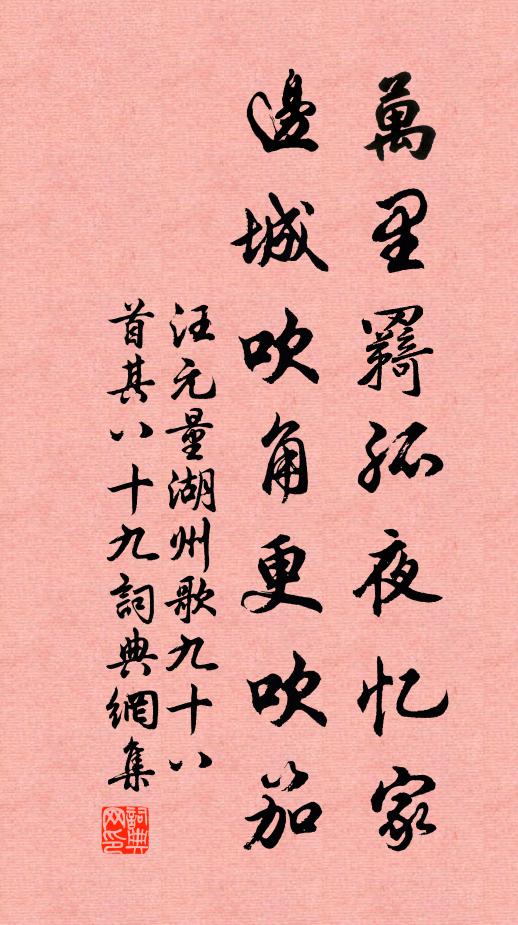 萬里羇孤夜忆家
邊城吹角更吹笳
汪元量湖州歌九十八
首其八十九詞典網集
詞典
网印